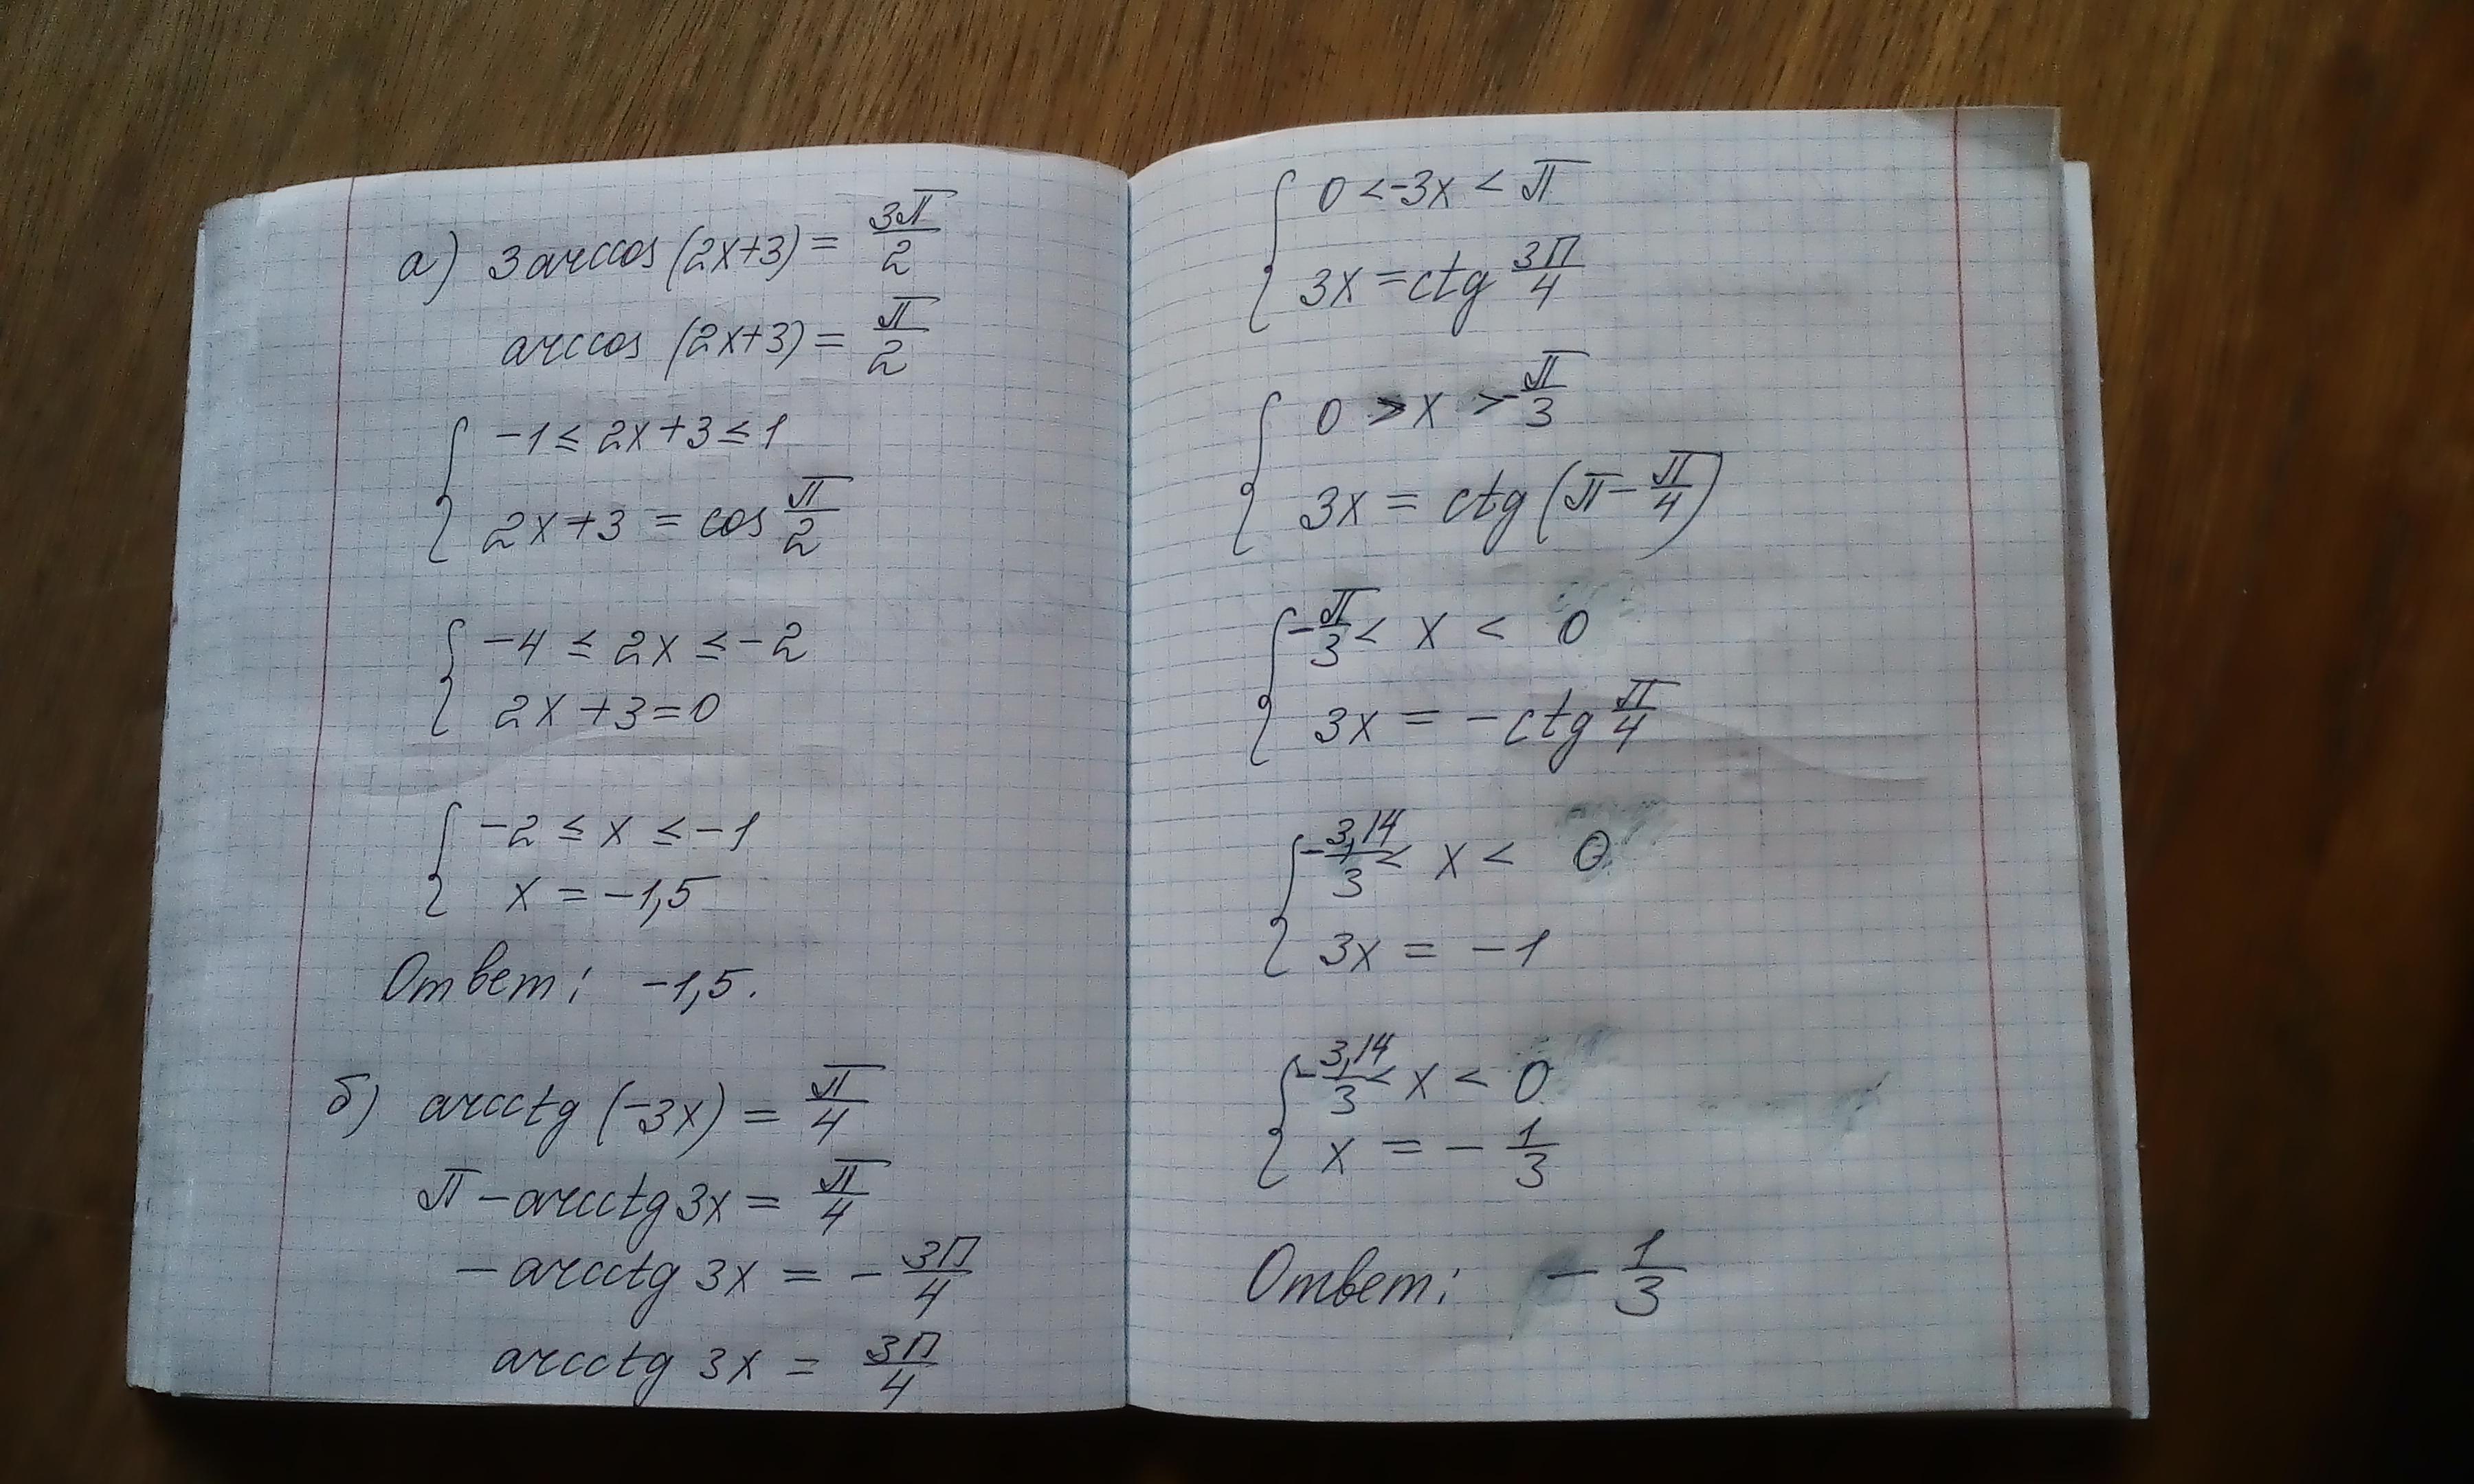 а) 3 arccos (2x+3) = 3π/2
arccos (2x+3) = π/2
{ -1 ≤ 2x+3 ≤ 1
2x+3 = cos π/2
{ -4 ≤ 2x ≤ -2
2x+3=0
{ -2 ≤ x ≤ -1
x = -1,5
Ответ: -1,5.
б) arcctg (-3x) = π/4
π - arcctg 3x = π/4
- arcctg 3x = - 3π/4
arcctg 3x = 3π/4
{ 0 < -3x < π
3x = ctg 3π/4
{ 0 > x > -π/3
3x = ctg (π - π/4)
{ -π/3 < x < 0
3x = -ctg π/4
{ -3,14/3 < x < 0
3x = -1
{ -3,14/3 < x < 0
x = - 1/3
Ответ: - 1/3